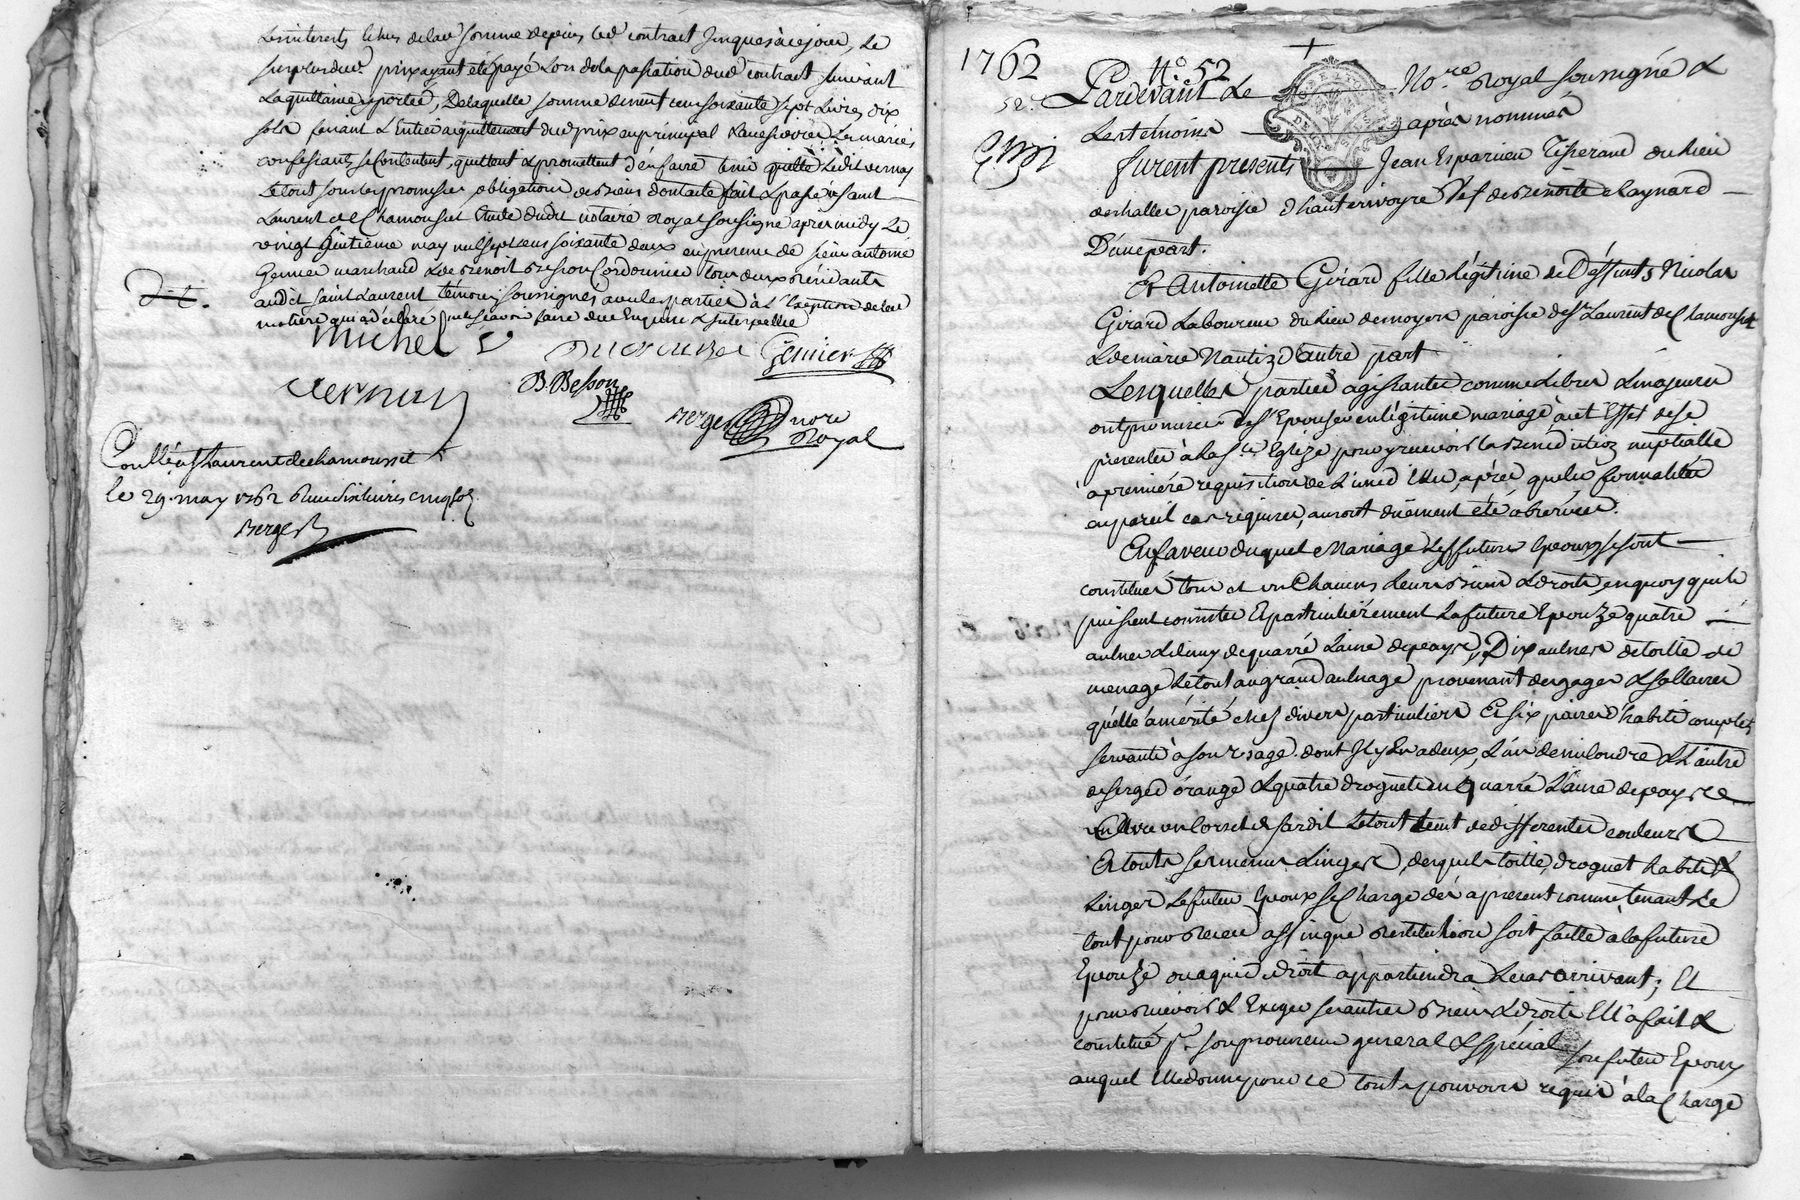 Les interests de lad somme depuis led contract jusques à ce jour, Le
surplus dud. prix ayant été payé Lors de la passation dud contract suivant
La quittance y portée, De laquelle somme de cent soixante sept Livres dix
sols faisant L'Entier aquittement dud prix en principal & accessoires Les mariés
confessants se contentent, quittent & promettent d'en faire tenir quitte Ledit vernay
Le tout sous les promesses, obligations des biens dont acte fait & passé à Saint
Laurent de Chamousset Etude dudit notaire Royal soussigné après midy Le
vingt huitieme may mil sept cens soixante deux en presence de sieur antoine
Genier marchand & de Benoit Besson Cordonnier tous deux résidants
audit saint Laurent témoins soussignés avec les parties à L'exception de lad
qui a déclaré ne sçavoir faire de ce Enquise & Interpellée
Michel
Genier
vernay
B. Besson
Berger no.re
Royal
Con.llé à St Laurent de chamousset
le 29. may 1762 Reçu six livres cinq sols.
Berger
1762
N.o 52
52.
Pardevant Le No.re Royal soussigné &
Les témoins après nommés
furent presents Jean Esparcieu Tisserand du Lieu
des halles paroisse d'hauterivoyre Vef de Benoite Raynard
D'une part.
Et Antoinette Girard fille légitime de Deffunts Nicolas
Girard Laboureur du Lieu de moyon paroisse de St Laurent de Chamousset
& de marie Nantiz D'autre part
Lesquelles parties agissantes comme Libres & majeures
ont promis de s'Epouser en Légitime mariage à cet Effet de se
presenter à La Ste Eglize pour y recevoir la Bénédiction nuptialle
à première réquisition de L'un d'Eux, après que les formalités
en pareil cas requises, auront düement été observées.
En faveur duquel Mariage Les futurs Epoux se sont
constitués tous et un Chacuns Leurs Biens & droits, en quoy qu'ils
puissent consister Et particulièrement La future Epouze quatre
aulnes & demy de quarré Laine de pays, Dix aulnes de toille de
menage Le tout au grand aulnage provenant des gages & sallaires
qu'elle a mérité chez divers particuliers Et six paires d'habits complets
servants à son Usage dont Il y En a deux, L'un de milondre & L'autre
de serge d'orange & quatre droguets ou quarré Laine de pays
Encore un Corset de sardit Le tout teint de differentes couleurs
Et touts ses menus Linges, desquels toille, droguet habits &
Linges Le futur Epoux se Charge dès à present comme tenant Le
tout pour Reçeu affinque Restitution soit faitte à La future
Epouze ou à qui de droit appartiendra Le cas arrivant; Et
pour recevoir & Exiger ses autres Biens & droits Elle a fait &
constitué pr. son procureur general & spécial son futur Epoux
auquel Elle donne pour ce tout pouvoir requis à la Charge